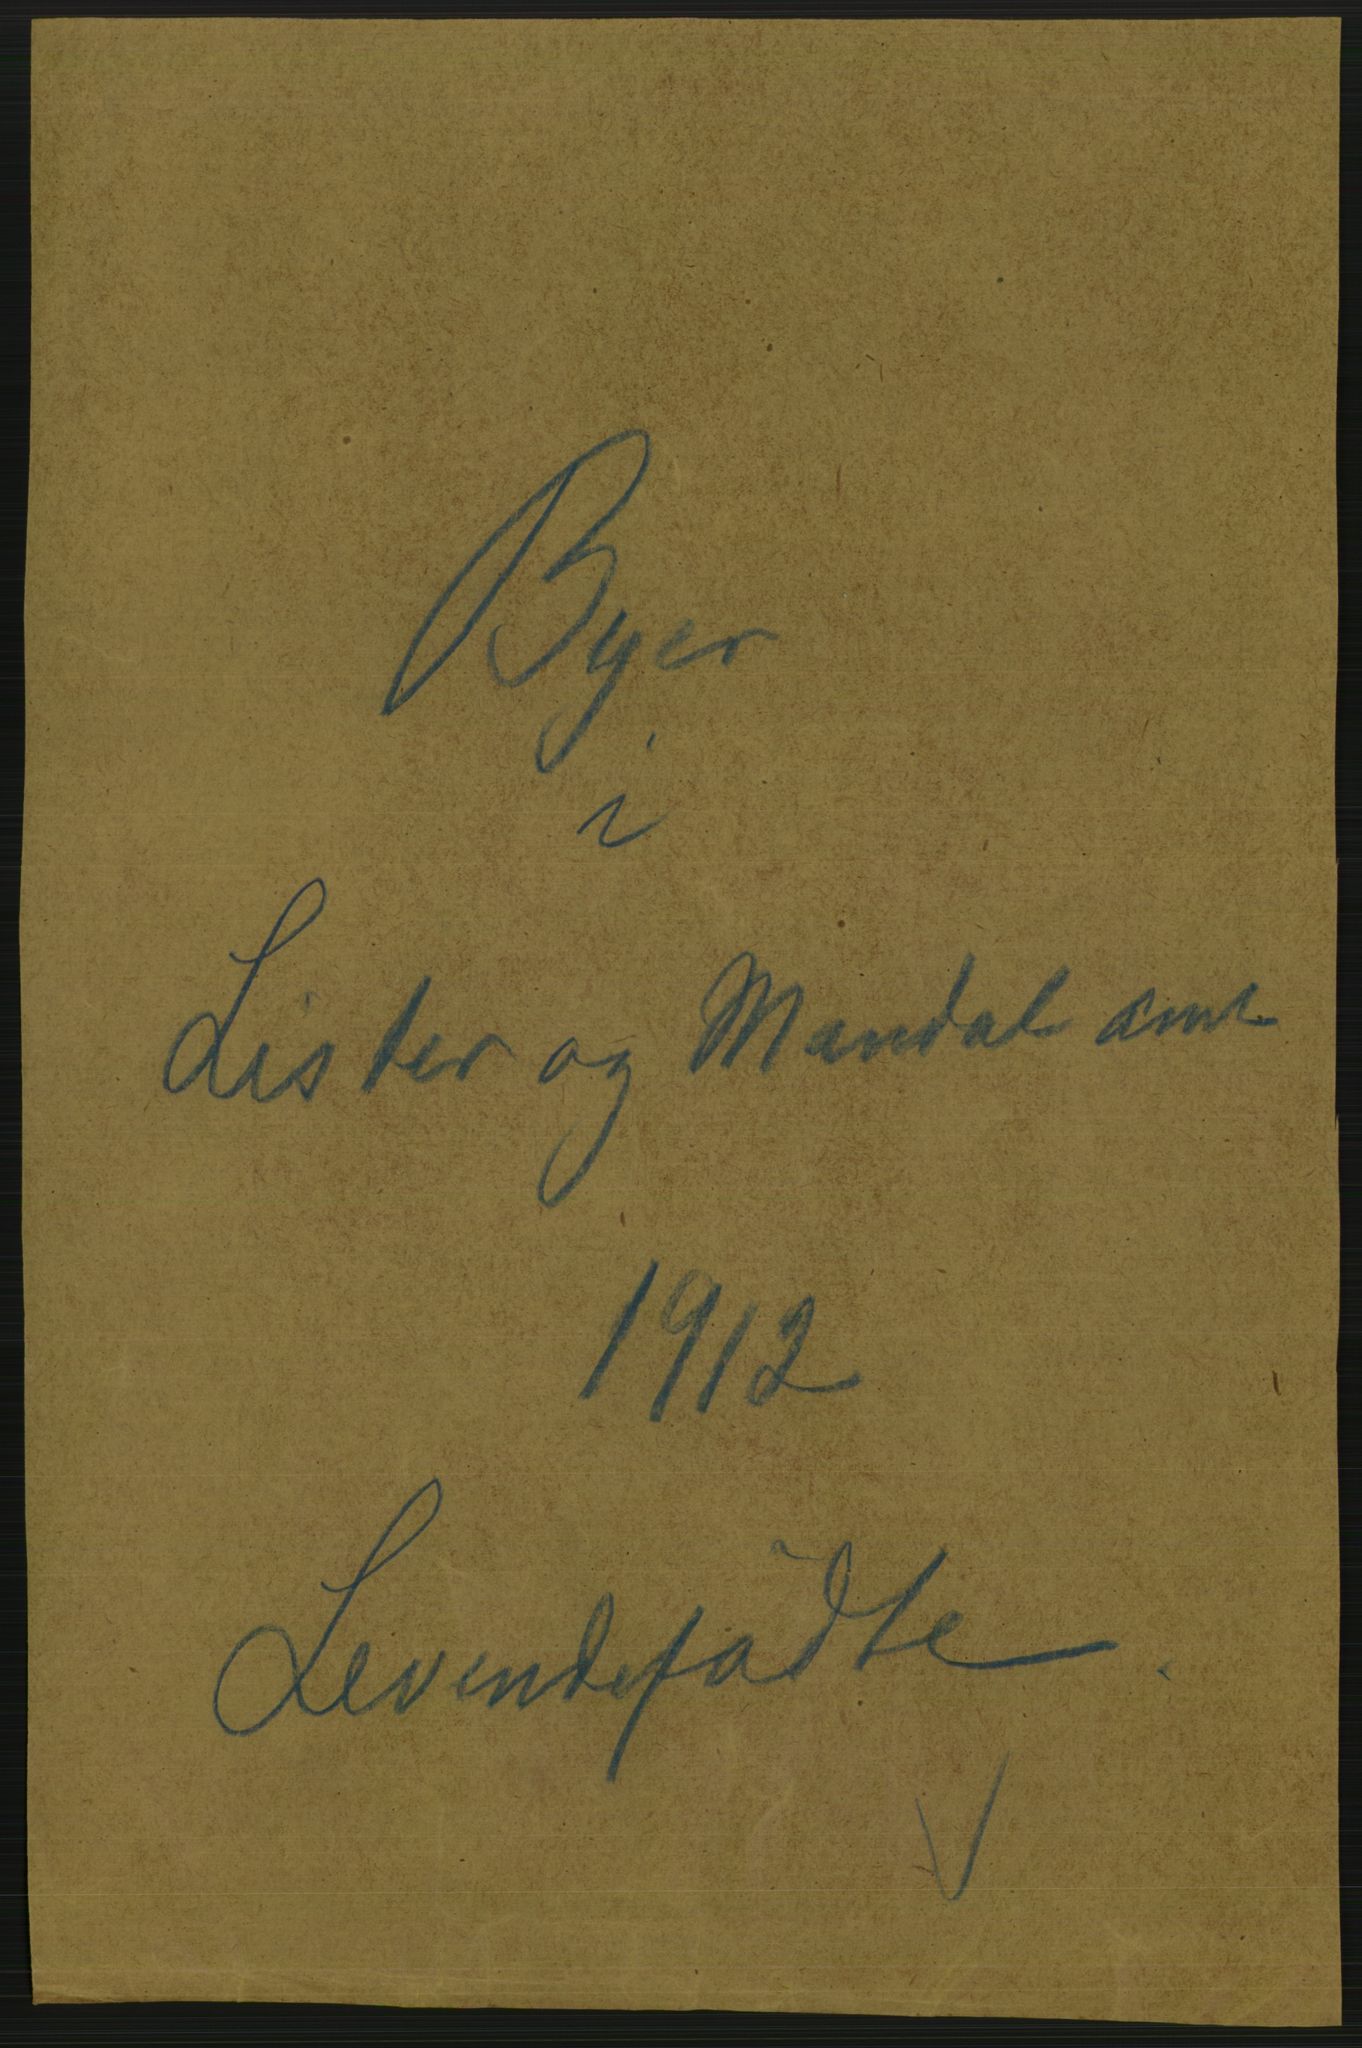 Byer
i
Lister og Mandal amt
1912
Levendefødte.
V